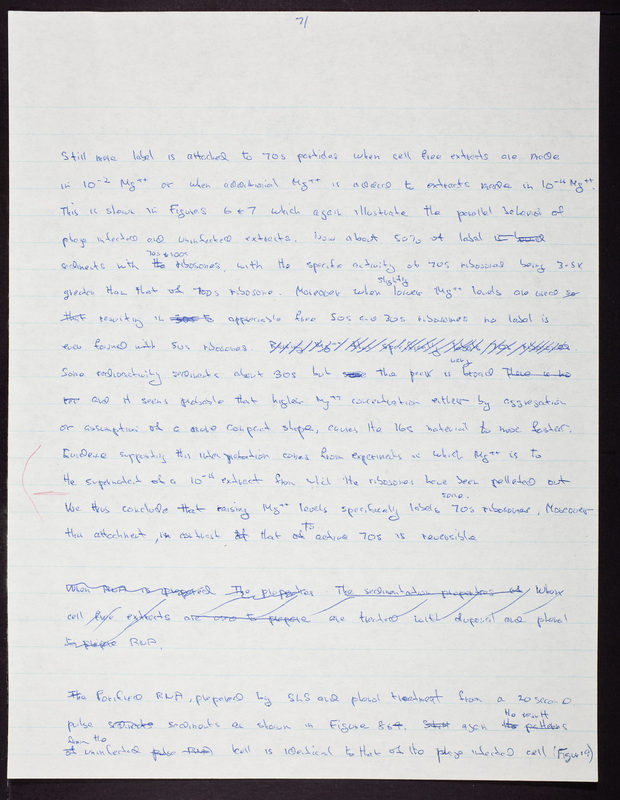 7/
Still more label is attached to 70s particles when cell free extracts are made
in 10⁻² Mg⁺⁺ or when additional Mg⁺⁺ is added to extracts made in 10⁻⁴ Mg⁺⁺.
This is shown in Figures 6 & 7 which again illustrate the parallel behavior of
phage infected and uninfected extracts. Now about 50% of label is bound
70s & 100s
sediments with the ribosomes, with the specific activity of 70s ribosomes being 3-5X
slightly
greater than that of 100s ribosome. Moreover when lower Mg⁺⁺ levels are used so
that resulting in 30s to appreciable free 50s and 30s ribosomes no label is
ever found with 50s ribosomes.
very
Some radioactivity sediments about 30s but the peak is broad There is no
and it seems probable that higher Mg⁺⁺ concentration either by aggregation
or assumption of a more compact shape, causes the 16s material to move faster.
Evidence supporting this interpretation comes from experiments in which Mg⁺⁺ is to
the supernatant of a 10⁻⁴ extract from which the ribosomes have been pelleted out
some
We thus conclude that raising Mg⁺⁺ levels specifically labels 70s ribosomes, Moreover
to
this attachment, in contrast, that of active 70s is reversible
When RNA is prepared The properties The sedimentation properties of When
cell free extracts are used to prepare are treated with duponol and phenol
to prepare RNA.
The Purified RNA, prepared by SLS and phenol treatment from a 20 second
the result
pulse sediments sediments as shown in Figure 8 again the patterns
from the
of uninfected pulse RNA cell is identical to that of the phage infected cell (Figure 9)